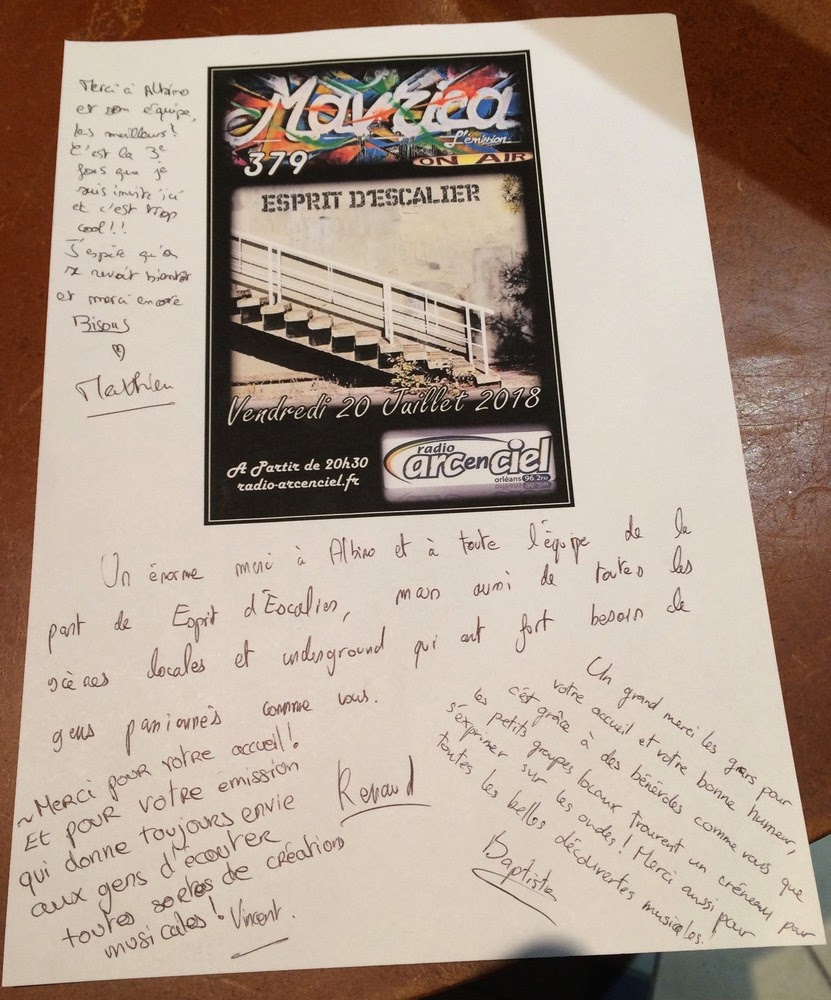 Merci à Albino
et son équipe,
les meilleurs!
C'est la 3e
fois que je
suis invité ici
et c'est trop
cool!!
J'espère qu'on
se revoit bientôt
et merci encore
Bisous
♡
Mathieu
Mavrica
L'émission
379
ON AIR
ESPRIT D'ESCALIER
Vendredi 20 Juillet 2018
A Partir de 20h30
radio-arcenciel.fr
radio
arc en ciel
orléans 96.2FM
Un énorme merci à Albino et à toute l'équipe de la
part de Esprit d'Escalier, mais aussi de toutes les
scènes locales et underground qui ont fort besoin de
gens passionnés comme vous.
Renaud
~Merci pour votre accueil!
Et pour votre émission
qui donne toujours envie
aux gens d'écouter
toutes sortes de créations
musicales! Vincent.
Un grand merci les gars pour
votre accueil et votre bonne humeur,
c'est grâce à des bénévoles comme vous que
les petits groupes locaux trouvent un créneau pour
s'exprimer sur les ondes! Merci aussi pour
toutes les belles découvertes musicales!
Baptistin